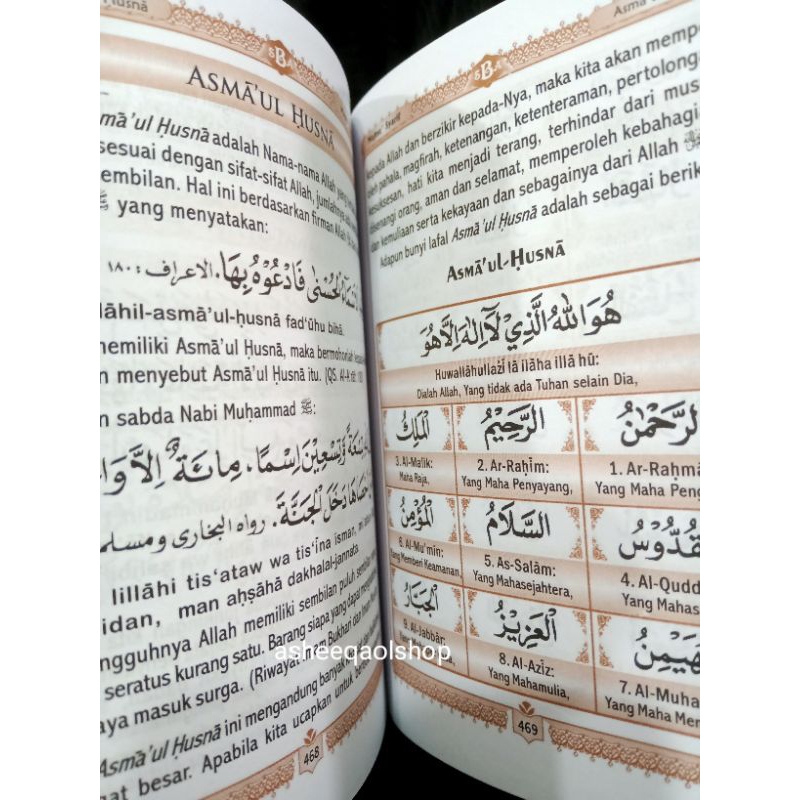 Ḥusnā
SBA
ASMĀ'UL ḤUSNĀ
smā'ul Ḥusnā adalah Nama-nama Allah yang
sesuai dengan sifat-sifat Allah, jumlahnya
embilan. Hal ini berdasarkan firman Allah
ﷺ yang menyatakan:
الحُسْنٰى فَادْعُوْهُ بِهَا. الاعراف: ١٨٠
lāhil-asmā'ul-ḥusnā fad'ūhu bihā.
emiliki Asmā'ul Ḥusnā, maka bermohonlah
n menyebut Asmā'ul Ḥusnā itu. (QS. Al-A'raf: 180)
n sabda Nabi Muḥammad ﷺ:
تِسْعَةً وَّتِسْعِيْنَ اِسْمًا. مِائَةٌ اِلَّا
دَخَلَ الْجَنَّةَ. رواه البخارى ومسلم
lillāhi tis'ataw wa tis'īna ismar,
idan, man aḥṣāhā dakhalal-jannata.
ngguhnya Allah memiliki sembilan puluh sembilan
seratus kurang satu. Barang siapa yang dapat
aya masuk surga. (Riwayat Imam Bukhari dan Imam
Asmā'ul Ḥusnā ini mengandung banyak
at besar. Apabila kita ucapkan untuk
468
SBA
kepada Allah dan berzikir kepada-Nya, maka kita akan mempe
oleh pahala, magfirah, ketenangan, ketenteraman, pertolonga
kesuksesan, hati kita menjadi terang, terhindar dari mus
disenangi orang, aman dan selamat, memperoleh kebahagi
dan kemuliaan serta kekayaan dan sebagainya dari Allah ﷻ
Adapun bunyi lafal Asmā'ul Ḥusnā adalah sebagai berik
ASMĀ'UL-ḤUSNĀ
هُوَ اللهُ الَّذِيْ لَآ اِلٰهَ اِلَّا هُوَ
Huwallāhullażī lā ilāha illā hū:
Dialah Allah, Yang tidak ada Tuhan selain Dia,
الرَّحْمٰنُ الرَّحِيْمُ الْمَلِكُ
1. Ar-Raḥmā 2. Ar-Raḥīm: 3. Al-Malik:
Yang Maha Peng Yang Maha Penyayang, Maha Raja,
قُدُّوْسُ السَّلَامُ الْمُؤْمِنُ
4. Al-Qudd 5. As-Salām: 6. Al-Mu'min:
Yang Mahas Yang Mahasejahtera, Yang Memberi Keamanan,
هَيْمِنُ الْعَزِيْزُ الْجَبَّارُ
7. Al-Muha 8. Al-Azīz: 9. Al-Jabbār:
Yang Maha Mem Yang Mahamulia,
469
asheeqaolshop